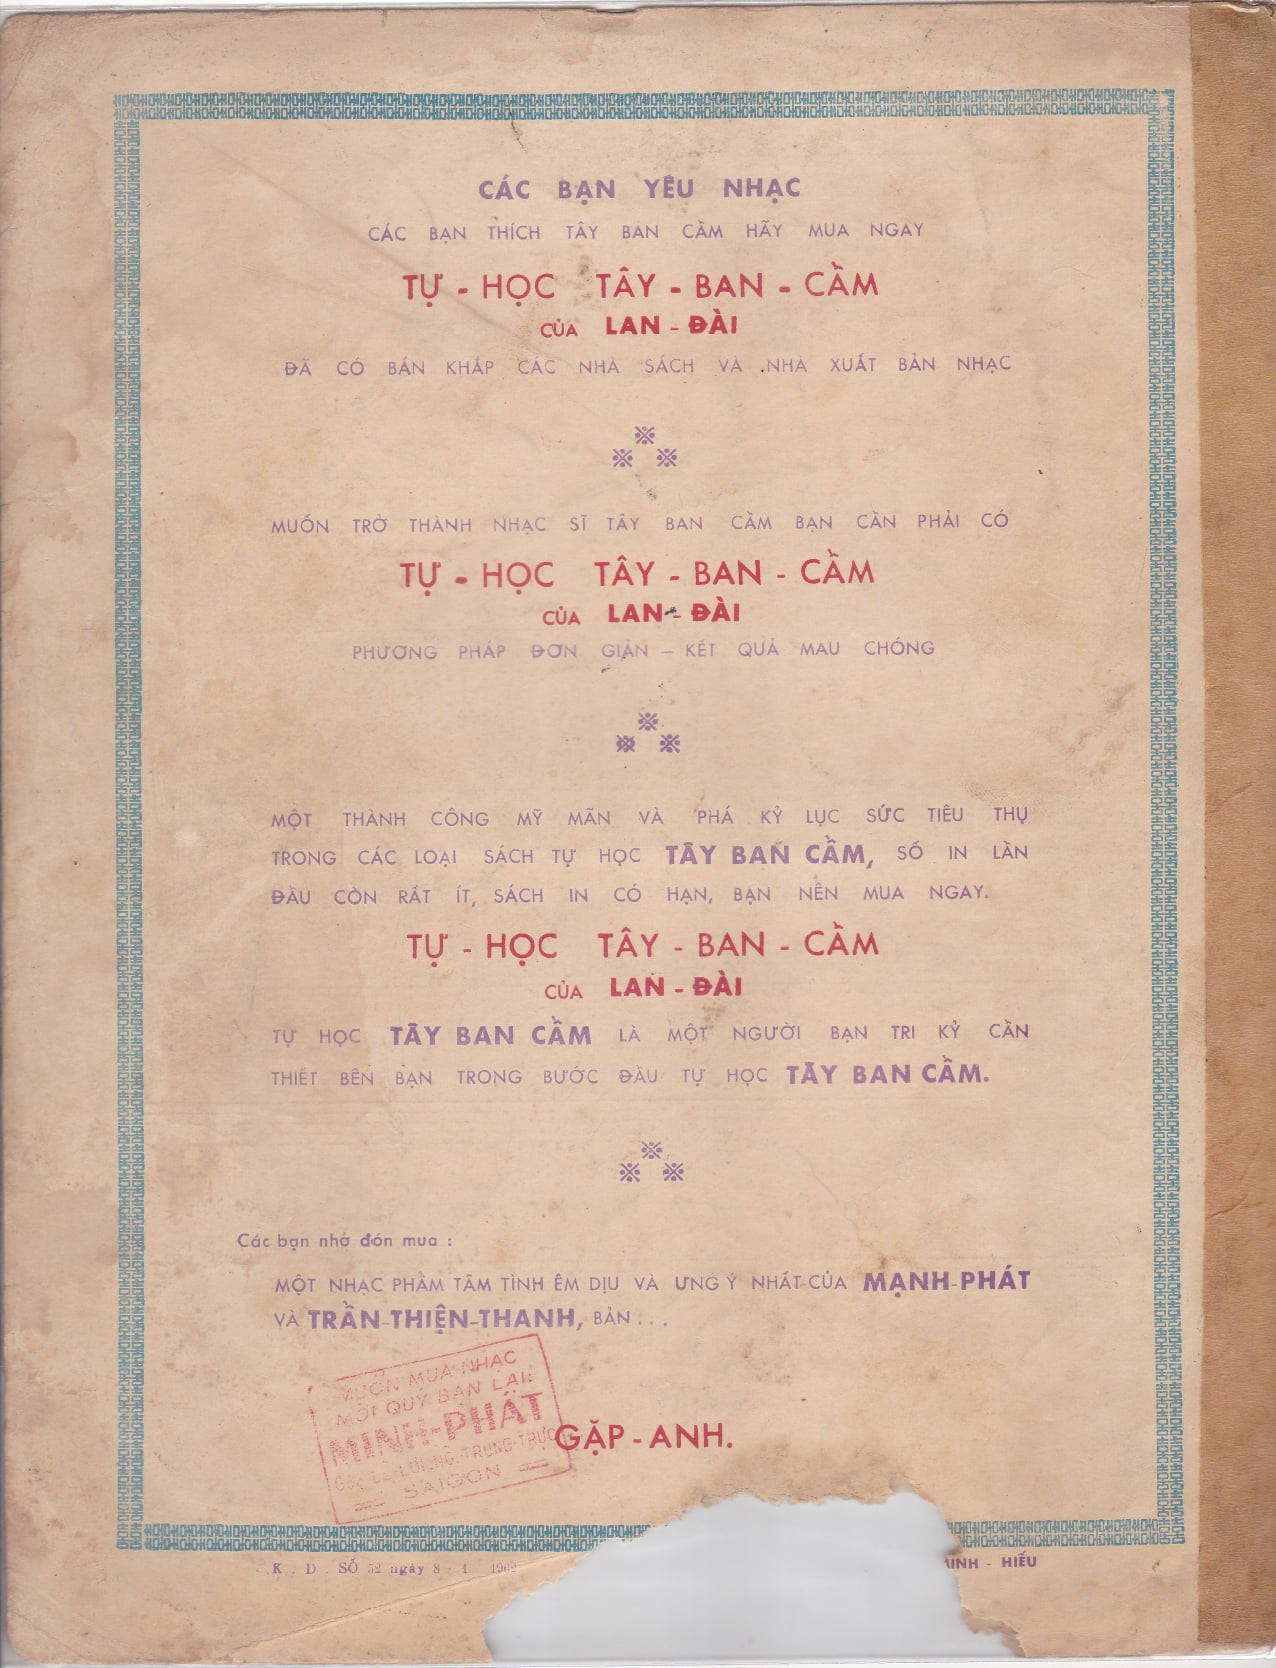 CÁC BẠN YÊU NHẠC
CÁC BẠN THÍCH TÂY BAN CẦM HÃY MUA NGAY
TỰ - HỌC TÂY - BAN - CẦM
CỦA LAN - ĐÀI
ĐÃ CÓ BÁN KHẮP CÁC NHÀ SÁCH VÀ NHÀ XUẤT BẢN NHẠC
MUỐN TRỞ THÀNH NHẠC SĨ TÂY BAN CẦM BẠN CẦN PHẢI CÓ
TỰ - HỌC TÂY - BAN - CẦM
CỦA LAN - ĐÀI
PHƯƠNG PHÁP ĐƠN GIẢN – KẾT QUẢ MAU CHÓNG
MỘT THÀNH CÔNG MỸ MÃN VÀ PHÁ KỶ LỤC SỨC TIÊU THỤ
TRONG CÁC LOẠI SÁCH TỰ HỌC TÂY BAN CẦM, SỐ IN LẦN
ĐẦU CÒN RẤT ÍT, SÁCH IN CÓ HẠN, BẠN NÊN MUA NGAY.
TỰ - HỌC TÂY - BAN - CẦM
CỦA LAN - ĐÀI
TỰ HỌC TÂY BAN CẦM LÀ MỘT NGƯỜI BẠN TRI KỶ CẦN
THIẾT BÊN BẠN TRONG BƯỚC ĐẦU TỰ HỌC TÂY BAN CẦM.
Các bạn nhớ đón mua :
MỘT NHẠC PHẨM TÂM TÌNH ÊM DỊU VÀ ƯNG Ý NHẤT CỦA MẠNH-PHÁT
VÀ TRẦN-THIỆN-THANH, BẢN . . .
MUỐN MUA NHẠC
MỜI QUÝ BẠN LẠI
MINH-PHÁT
SAIGON
GẶP - ANH.
K . D . SỐ 52 ngày 8 - 1 1962
MINH - HIẾU